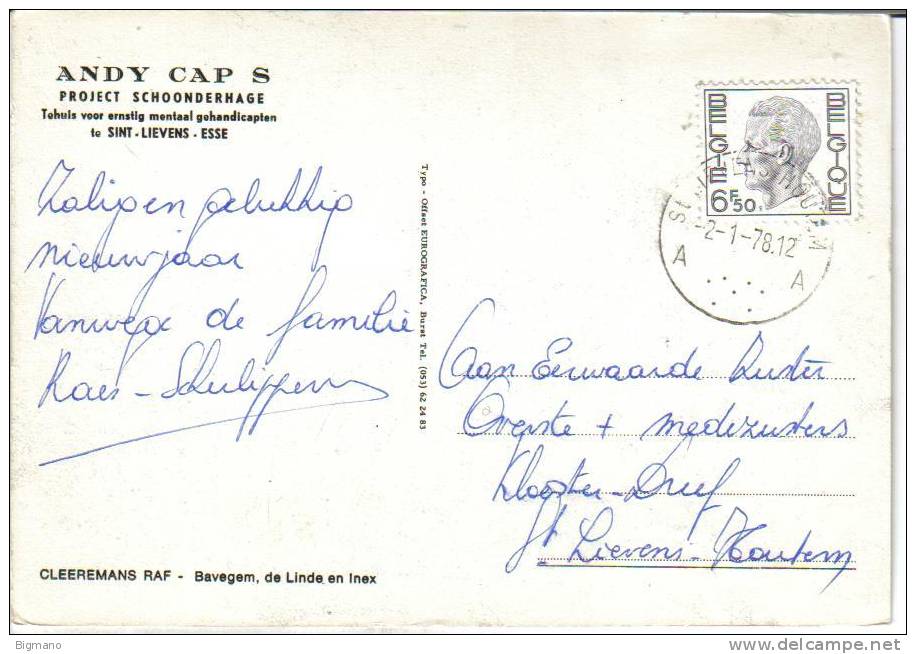 ANDY CAP S
PROJECT SCHOONDERHAGE
Tehuis voor ernstig mentaal gehandicapten
te SINT-LIEVENS-ESSE
Zalig en gelukkig
nieuwjaar
Vanwege de familie
Raes - Schulippen
Typo - Offset EUROGRAFICA, Burst Tel. (053) 62 24 83
BELGIE BELGIQUE
6F50
St LIEVENS HOUTEM
-2-1-78.12
A A
Aan Eerwaarde Zuster
Overste + medezusters
Klooster - Dreef
St Lievens-Houtem
CLEEREMANS RAF - Bavegem, de Linde en Inex
Bigmano
www.delcampe.net